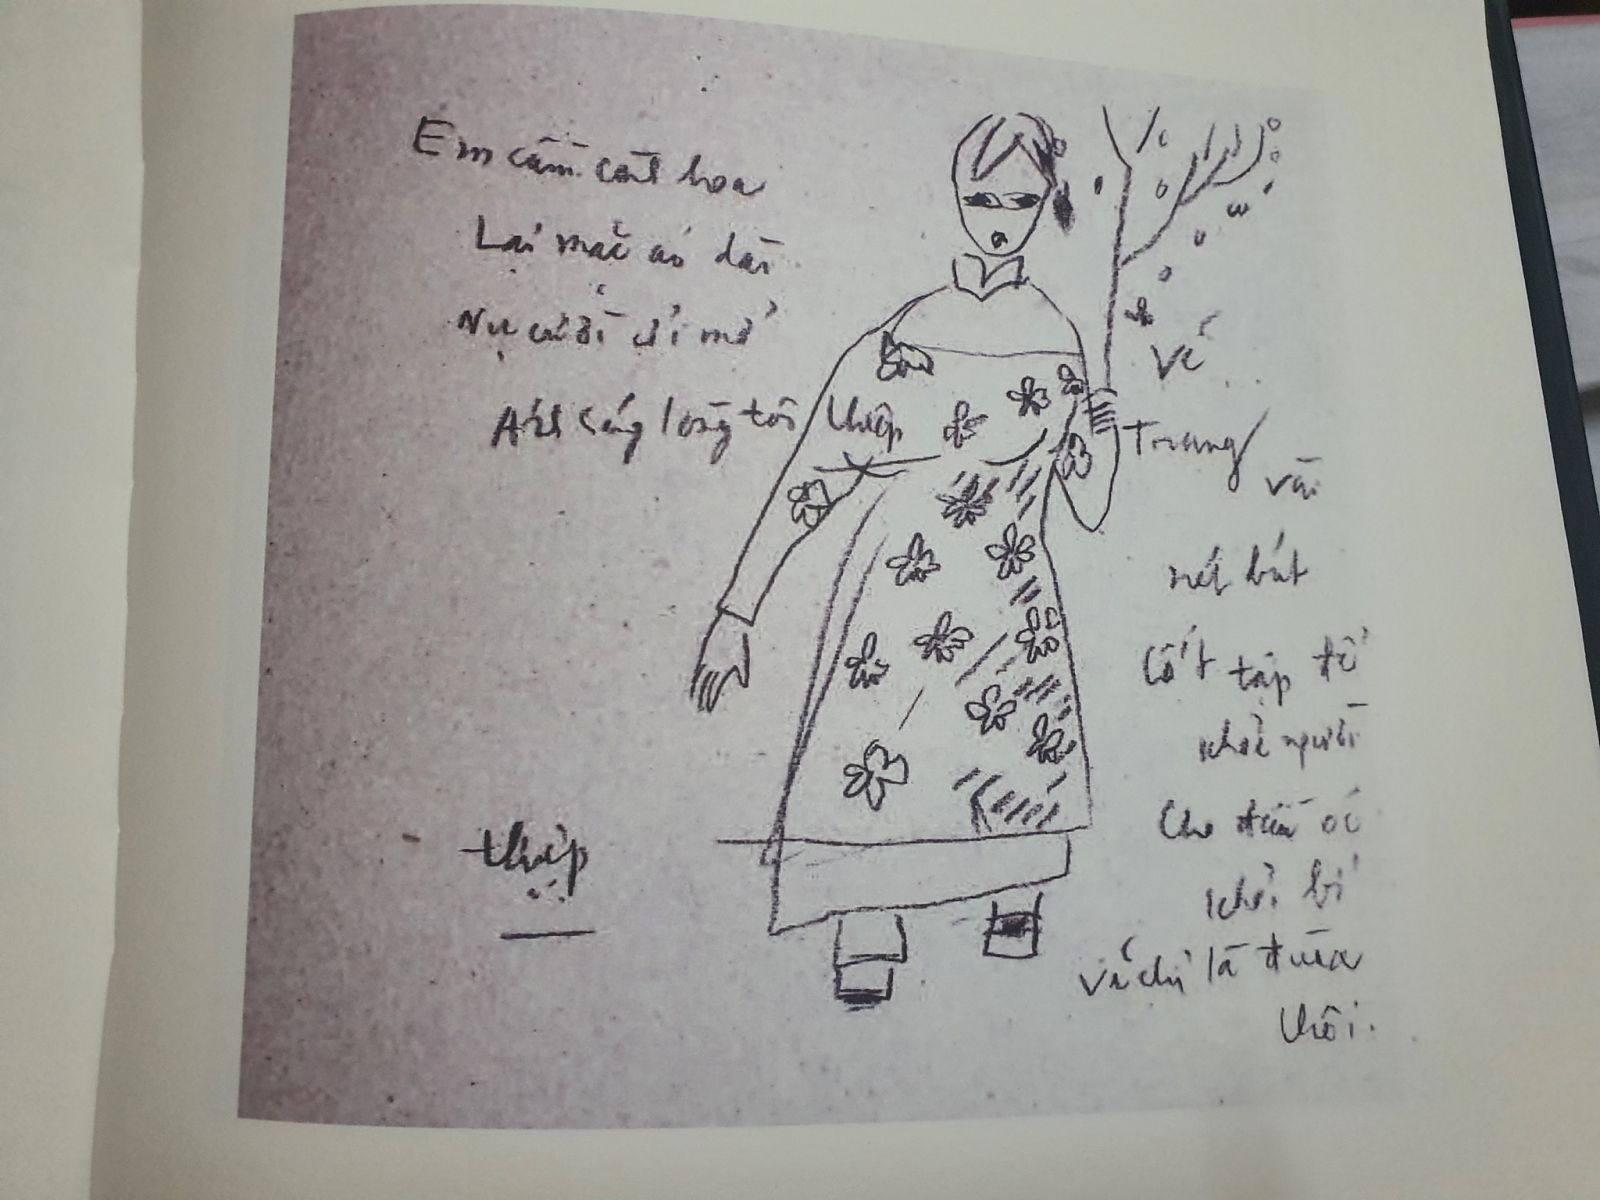 Em cầm cành hoa
Lại mặc áo dài
Nụ cười cởi mở
Ánh sáng lòng tôi thiệp
Vẽ
Trang
vài
nét bút
Cốt tập để
khoẻ người
Cho đầu óc
khỏi bí
vẽ chỉ là đùa
thôi.
thiệp